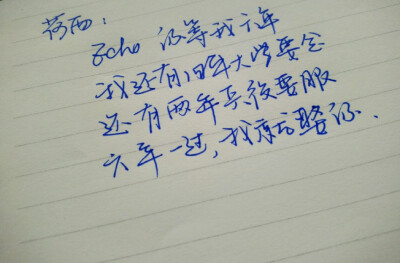 荷西：
Echo 你等我六年
我还有四年大学要念
还有两年兵役要服
六年一过，我就娶你.